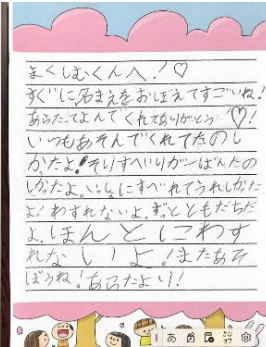 まくしむくんへ!♡
すぐに名まえをおぼえてすごいね!
あらたってよんでくれてありがとう♡!
いつもあそんでくれてたのし
かったよ!そりすべりがいちばんたの
しかったよ。いっしょにすべれてうれしかった
よ!わすれないよ。ずっとともだちだ
よ。ほんとにわす
れないよ!またあそ
ぼうね!あらたより!
あ